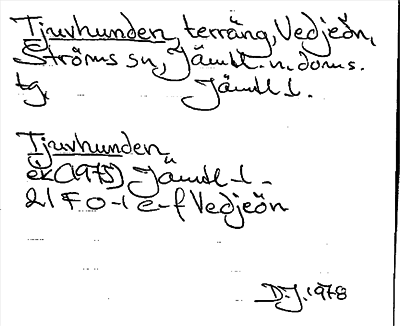 Tjuvhunden, terräng, Vedjeön,
Ströms sn, Jämtl. n. doms.
tg. Jämtl l.
Tjuvhunden
ek (1975) Jämtl l
21 F 0-1 e-f Vedjeön
D.J. 1978